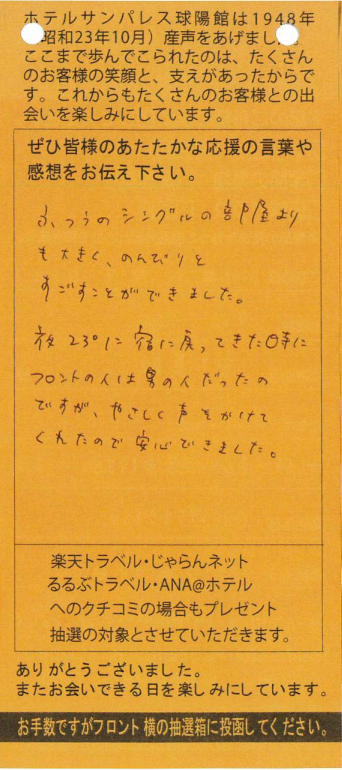 ホテルサンパレス球陽館は1948年
（昭和23年10月）産声をあげました。
ここまで歩んでこられたのは、たくさん
のお客様の笑顔と、支えがあったからで
す。これからもたくさんのお客様との出
会いを楽しみにしています。
ぜひ皆様のあたたかな応援の言葉や
感想をお伝え下さい。
ふつうのシングルの部屋より
も大きく、のんびりと
すごすことができました。
夜23°に宿に戻ってきた時に
フロントの人は男の人だったの
ですが、やさしく声をかけて
くれたので安心できました。
楽天トラベル・じゃらんネット
るるぶトラベル・ANA@ホテル
へのクチコミの場合もプレゼント
抽選の対象とさせていただきます。
ありがとうございました。
またお会いできる日を楽しみにしています。
お手数ですがフロント横の抽選箱に投函してください。